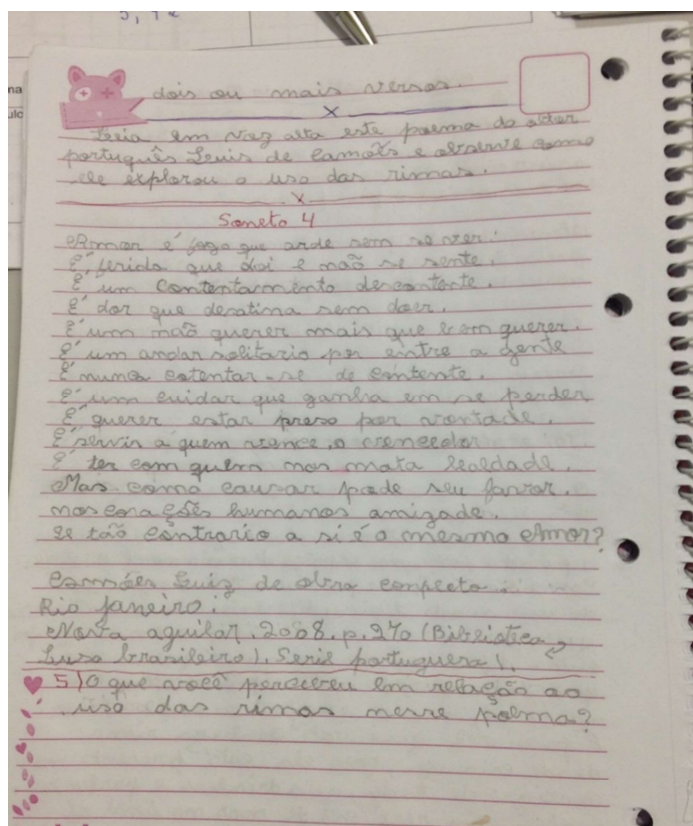 5, 1
na
ulo
dois ou mais versos.
x
Leia em voz alta este poema do autor
português Luis de Camões e observe como
ele explorou o uso das rimas.
x
Soneto 4
Amor é fogo que arde sem se ver.
É ferida que doi e não se sente.
É um contentamento descontente.
É dor que desatina sem doer.
É um não querer mais que bom querer.
É um andar solitario por entre a gente
É nunca cotentar-se de contente.
É um cuidar que ganha em se perder
É querer estar preso por vontade.
É servir a quem vence, o vencedor
É ter com quem nos mata lealdade.
Mas como causar pode seu favor.
nos corações humanos amizade.
se tão contrario a si é o mesmo Amor?
Camões Luiz de obra completa.
Rio janeiro:
Nova aguilar. 2008. p. 270 (Biblioteca
Luso brasileiro). Serie portuguesa).
5) O que você percebeu em relação ao
uso das rimas nesse poema?